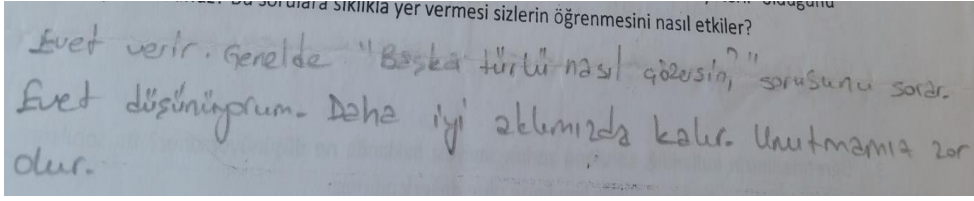 sorulara sıklıkla yer vermesi sizlerin öğrenmesini nasıl etkiler?
Evet verir. Genelde "Başka türlü nasıl çözersin?" sorusunu sorar.
Evet düşünüyorum. Daha iyi aklımızda kalır. Unutmamız zor
olur.